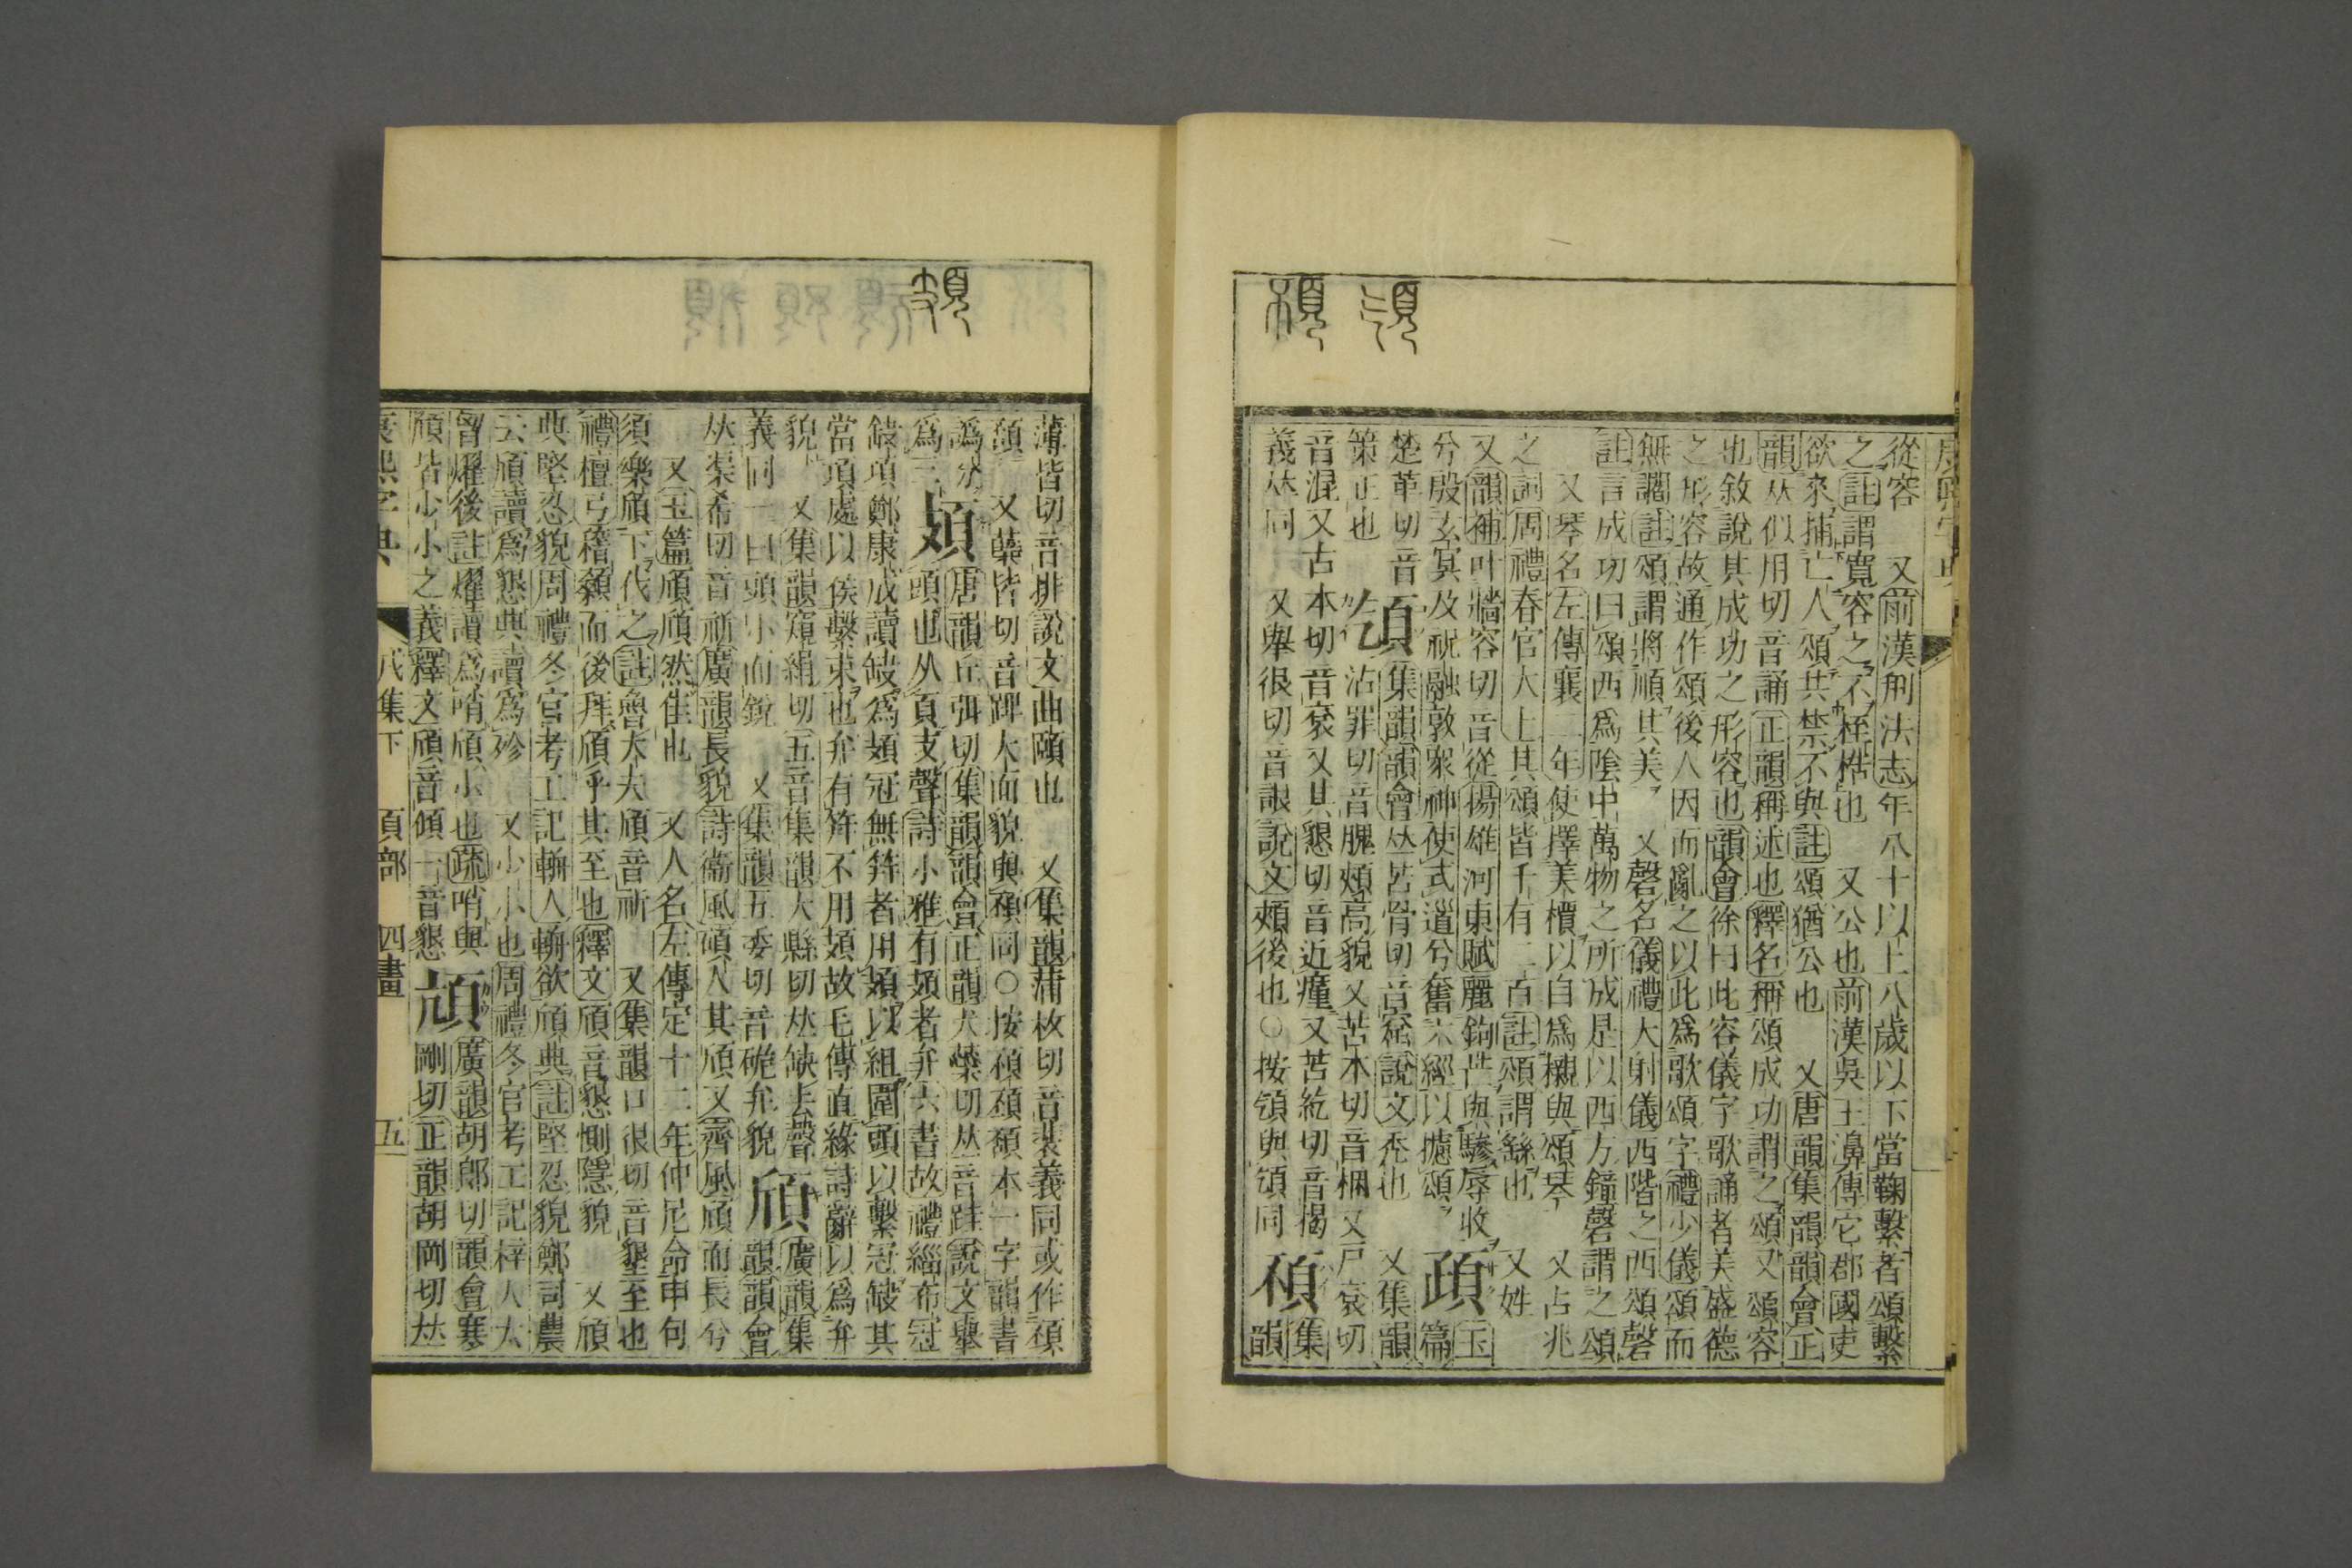 從容　又前漢刑法志年八十以上八歲以下當鞠繫者頌繫
之註謂寬容之不桎梏也　又公也前漢吳王濞傳它郡國吏
欲來捕亡人頌共禁不與註頌猶公也　又唐韻集韻韻會正
韻𠀤似用切音誦正韻稱述也釋名稱頌成功謂之頌又頌容
也敘說其成功之形容也韻會徐曰此容儀字歌誦者美盛德
之形容故通作頌後人因而亂之以此爲歌頌字禮少儀頌而
無讇註頌謂將順其美　又磬名儀禮大射儀西階之西頌磬
註言成功曰頌西爲陰中萬物之所成是以西方鐘磬謂之頌
又琴名左傳襄二年使擇美檟以自爲櫬與頌琴　又占兆
之詞周禮春官大卜其頌皆千有二百註頌謂繇也　又姓
又韻補叶牆容切音從揚雄河東賦麗鉤芒與驂蓐收 頙 玉
兮服玄冥及祝融敦衆神使式道兮奮六經以攄頌 篇
楚革切音 頎 集韻韻會𠀤苦骨切音窟說文禿也　又集韻
策正也 沽罪切音䐴頰高貌又苦本切音梱又戸袞切
音混又古本切音袞又其懇切音近㾓又苦紇切音揭 集
義𠀤同　又舉很切音詪說文頰後也○按頎與頎同 䫌 韻
薄皆切音排說文曲頤也　又集韻蒲枚切音裴義同或作䫌
頯　又蘗皆切音䠋大面貌與䫌同○按䫌䫠本一字韻書
譌分 唐韻丘弭切集韻韻會正韻犬蘂切𠀤音跬說文舉
爲二 頍 頭也从頁支聲詩小雅有頍者弁六書故禮緇布冠
䤥項鄭康成讀缺爲頍冠無笄者用頍以組圍頭以繫冠缺其
當項處以俟繫束也弁有笄不用頍故毛傳直緣詩辭以爲弁
貌　又集韻窺絹切五音集韻犬縣切𠀤缺去聲 廣韻集
義同一曰頭小而銳　又集韻五委切音硊弁貌 頎 韻韻會
𠀤渠希切音祈廣韻長貌詩衞風碩人其頎又齊風頎而長兮
又玉篇頎頎然佳也　又人名左傳定十二年仲尼命申句
須樂頎下伐之註魯大夫頎音祈　又集韻口很切音墾至也
禮檀弓稽顙而後拜頎乎其至也釋文頎音懇惻隱貌　又頎
典堅忍貌周禮冬官考工記輈人輈欲頎典註堅忍貌鄭司農
云頎讀爲懇典讀爲殄　又小小也周禮冬官考工記梓人大
胷燿後註燿讀爲哨頎小也疏哨與 廣韻胡郎切韻會寒
頎皆少小之義釋文頎音傾一音懇 頏 剛切正韻胡岡切𠀤
康熙字典　戌集下　頁部　四畫　五